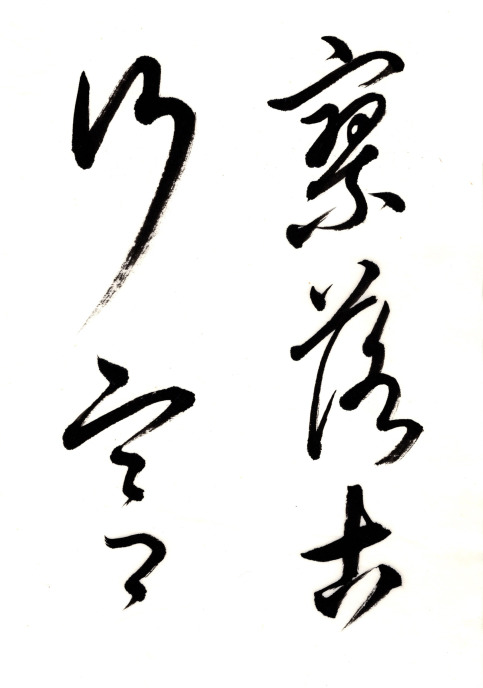 寥落古
行宮